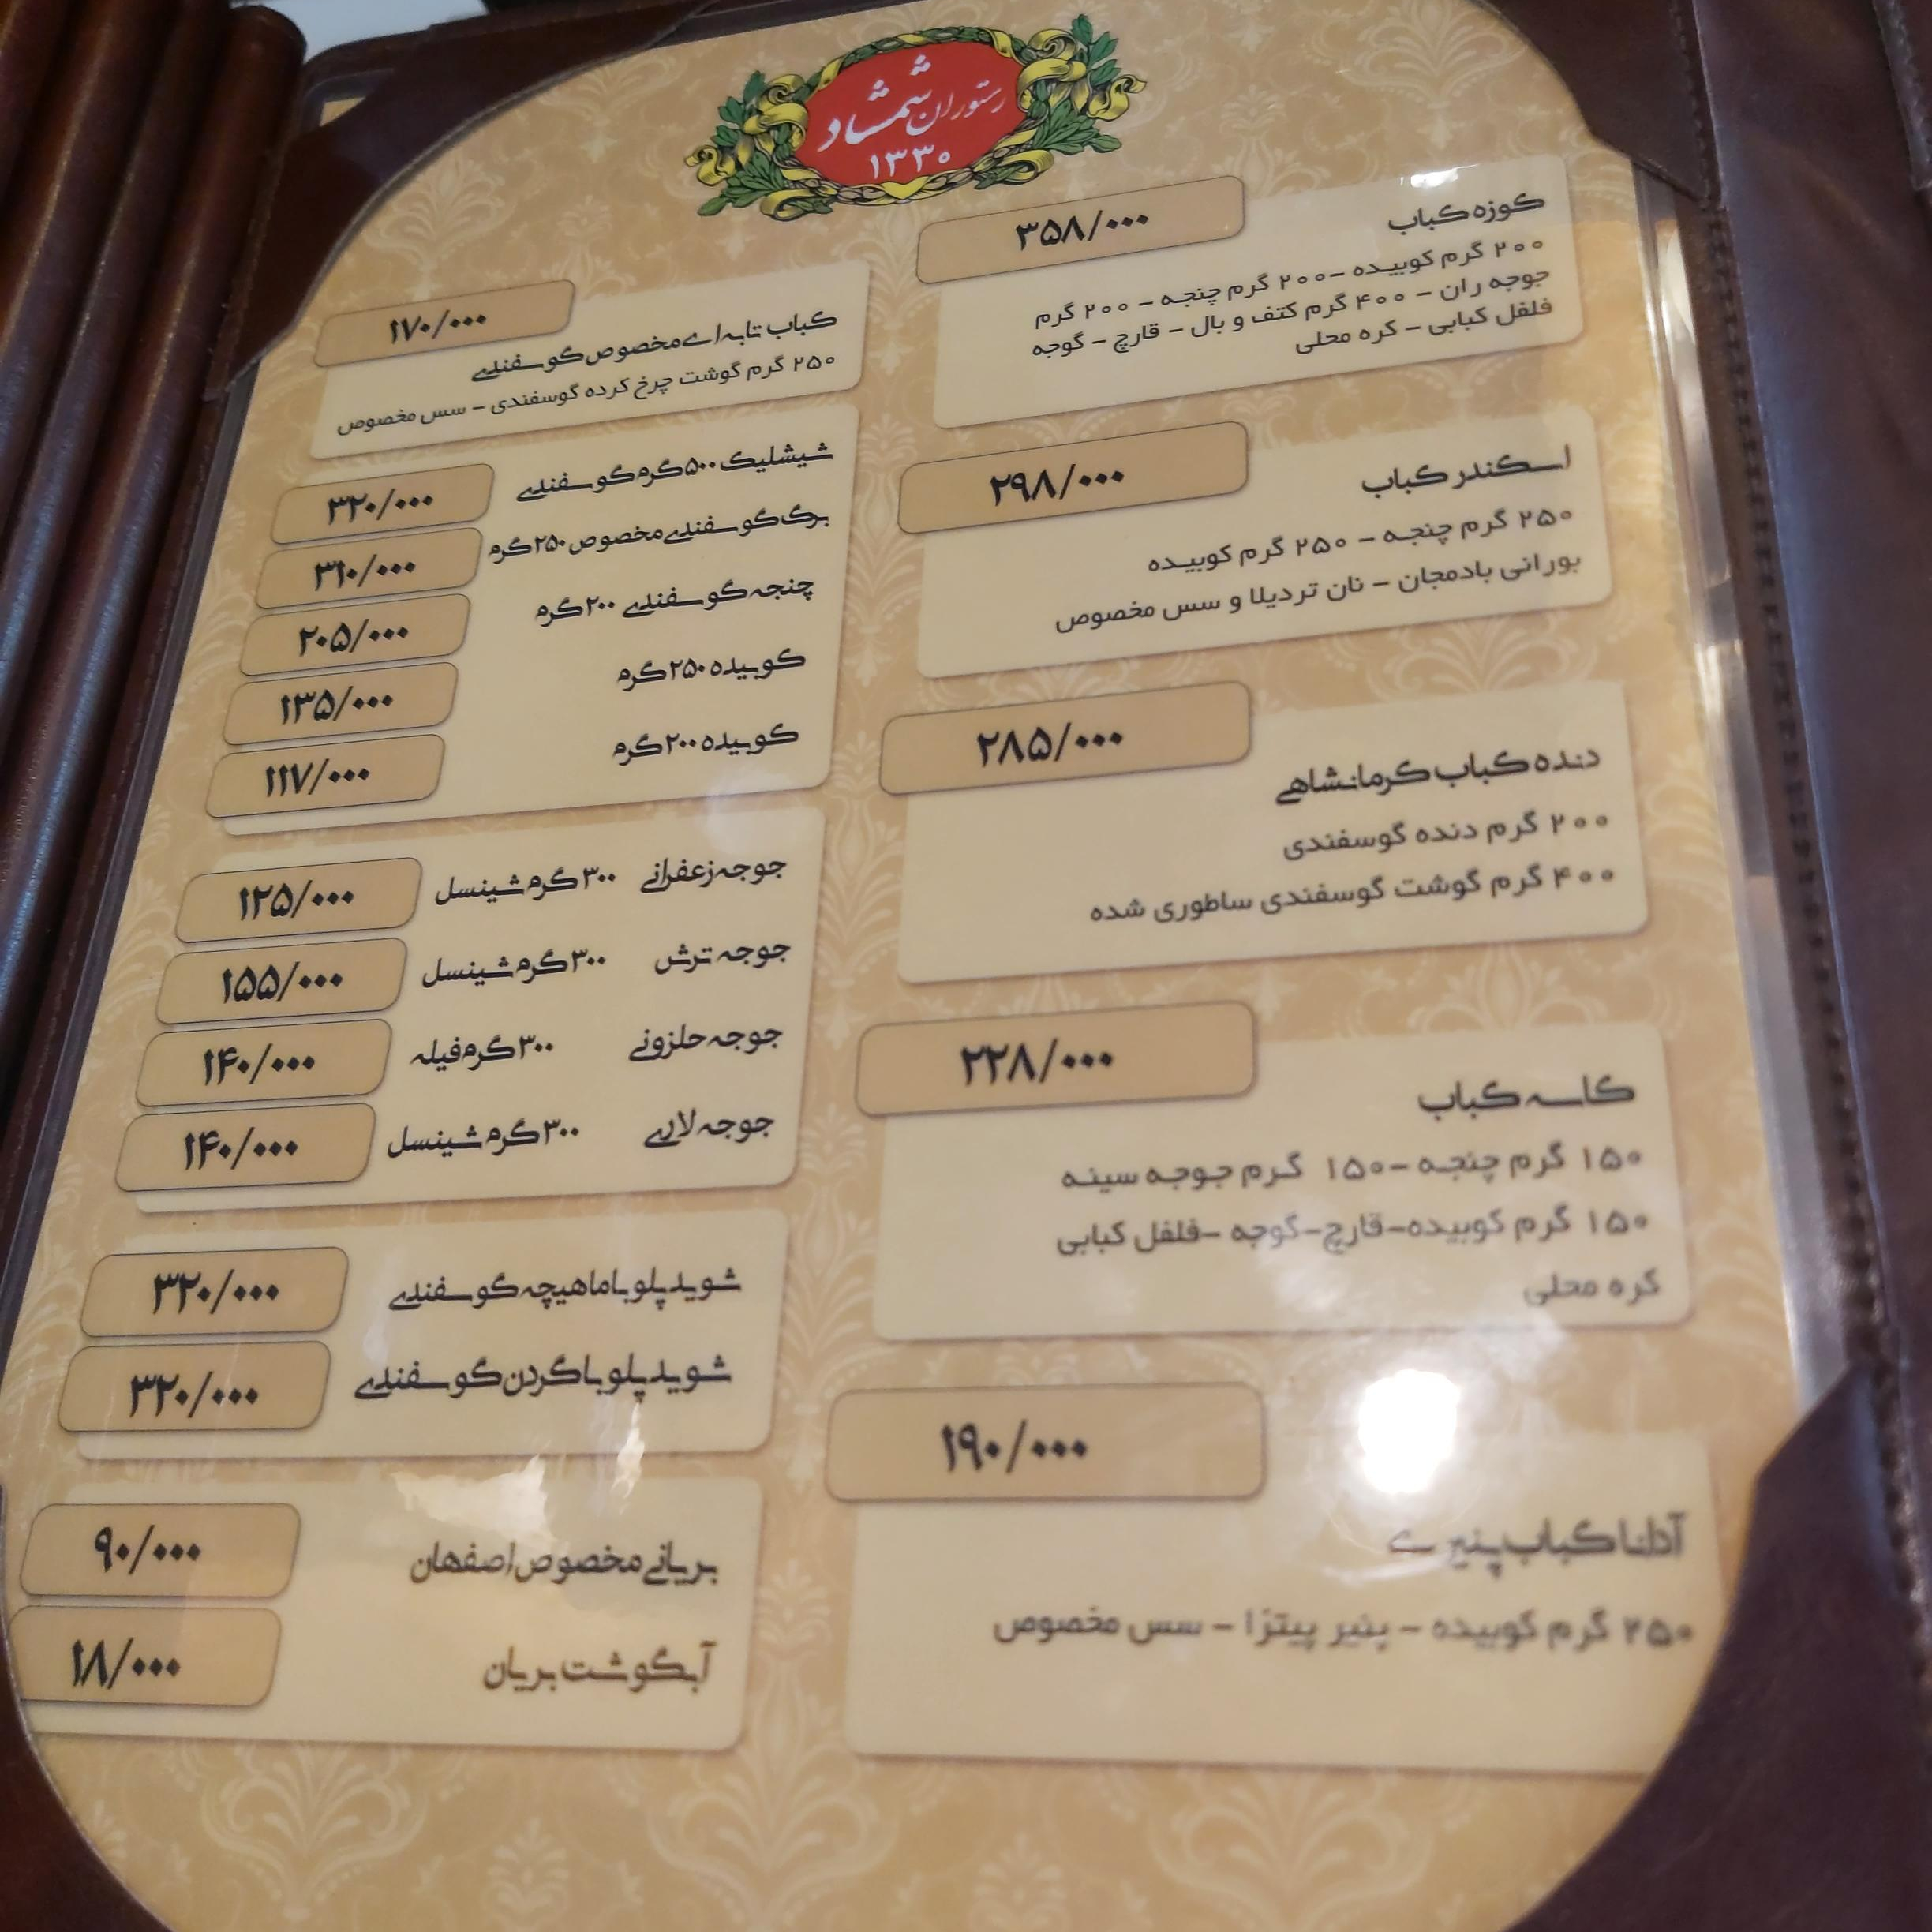 رستوران شمشاد
۱۳۳۰
کوزه کباب
۳۵۸/۰۰۰
۲۰۰ گرم کوبیده -۲۰۰ گرم چنجه - ۲۰۰ گرم
جوجه ران - ۴۰۰ گرم کتف و بال - قارچ - گوجه
فلفل کبابی - کره محلی
اسکندر کباب
۲۹۸/۰۰۰
۲۵۰ گرم چنجه - ۲۵۰ گرم کوبیده
بورانی بادمجان - نان تردیلا و سس مخصوص
دنده کباب کرمانشاهی
۲۸۵/۰۰۰
۲۰۰ گرم دنده گوسفندی
۴۰۰ گرم گوشت گوسفندی ساطوری شده
کاسه کباب
۲۲۸/۰۰۰
۱۵۰ گرم چنجه -۱۵۰ گرم جوجه سینه
۱۵۰ گرم کوبیده-قارچ-گوجه -فلفل کبابی
کره محلی
آدانا کباب پنیری
۱۹۰/۰۰۰
۲۵۰ گرم کوبیده - پنیر پیتزا - سس مخصوص
کباب تابه ای مخصوص گوسفندی
۱۷۰/۰۰۰
۲۵۰ گرم گوشت چرخ کرده گوسفندی - سس مخصوص
شیشلیک ۵۰۰ گرم گوسفندی ۳۲۰/۰۰۰
برگ گوسفندی مخصوص ۲۵۰ گرم ۳۱۰/۰۰۰
چنجه گوسفندی ۲۰۰ گرم ۲۰۵/۰۰۰
کوبیده ۲۵۰ گرم ۱۳۵/۰۰۰
کوبیده ۲۰۰ گرم ۱۱۷/۰۰۰
جوجه زعفرانی ۳۰۰ گرم شینسل ۱۲۵/۰۰۰
جوجه ترش ۳۰۰ گرم شینسل ۱۵۵/۰۰۰
جوجه حلزونی ۳۰۰ گرم فیله ۱۴۰/۰۰۰
جوجه لاری ۳۰۰ گرم شینسل ۱۴۰/۰۰۰
شوید پلو با ماهیچه گوسفندی ۳۲۰/۰۰۰
شوید پلو با گردن گوسفندی ۳۲۰/۰۰۰
بریانی مخصوص اصفهان ۹۰/۰۰۰
آبگوشت بریان ۱۸/۰۰۰